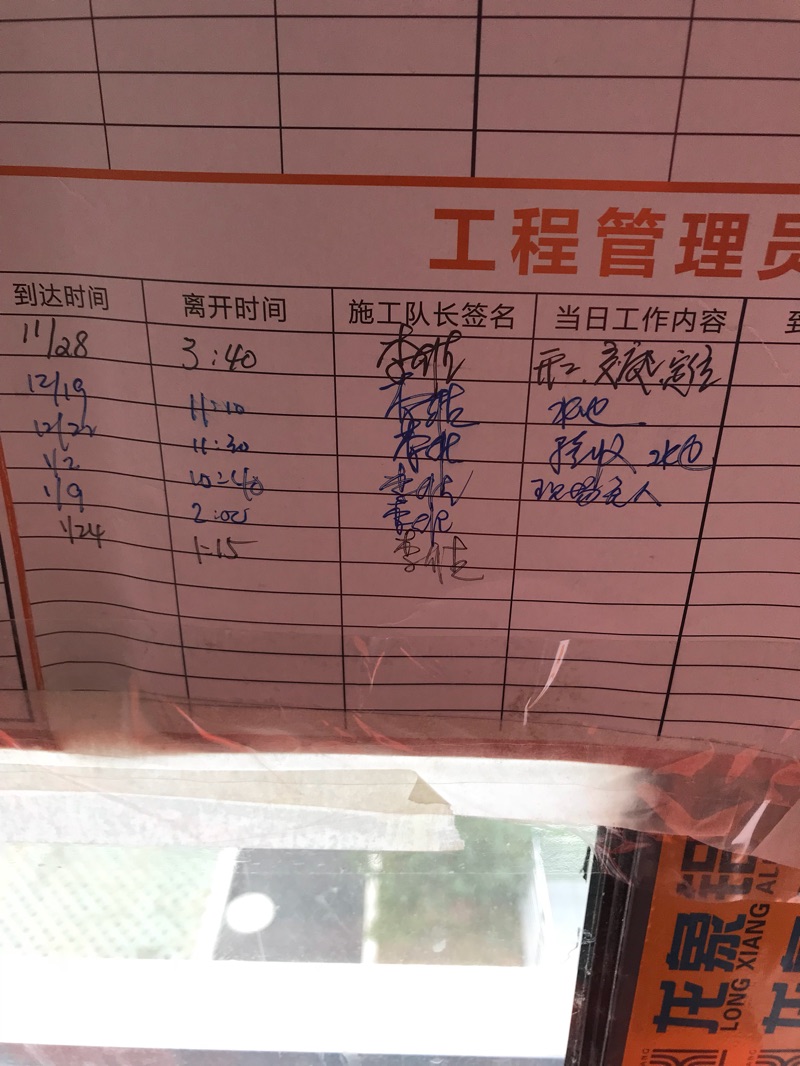 工程管理员
到达时间 离开时间 施工队长签名 当日工作内容 到
11/28 3:40 开工.交底.定位
12/19 11:10 水电
12/22 11:30 验收 水电
1/2 10:40 现场无人
1/9 2:00
1/24 1:15
龙象铝
LONG XIANG AL